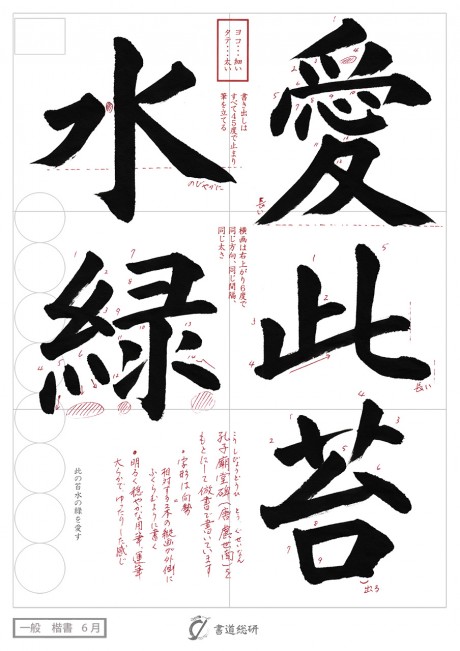 愛此苔
水緑
ヨコ・・・細い
タテ・・・太い
書き出しは
すべて45度で止まり
筆を立てる
のびやかに
長い
横画は右上がり6度で
同じ方向、同じ間隔、
同じ太さ
長い
出る
こうしびょうどうひ とう ぐせいなん
孔子廟堂碑(唐・虞世南)を
もとにして倣書で書いています
・字形は向勢
相対する二本の縦画が外側に
ふくらむように書く
・明るく穏やかな用筆、運筆
大らかで、ゆったりした感じ
此の苔水の緑を愛す
一般 楷書 6月
書道総研